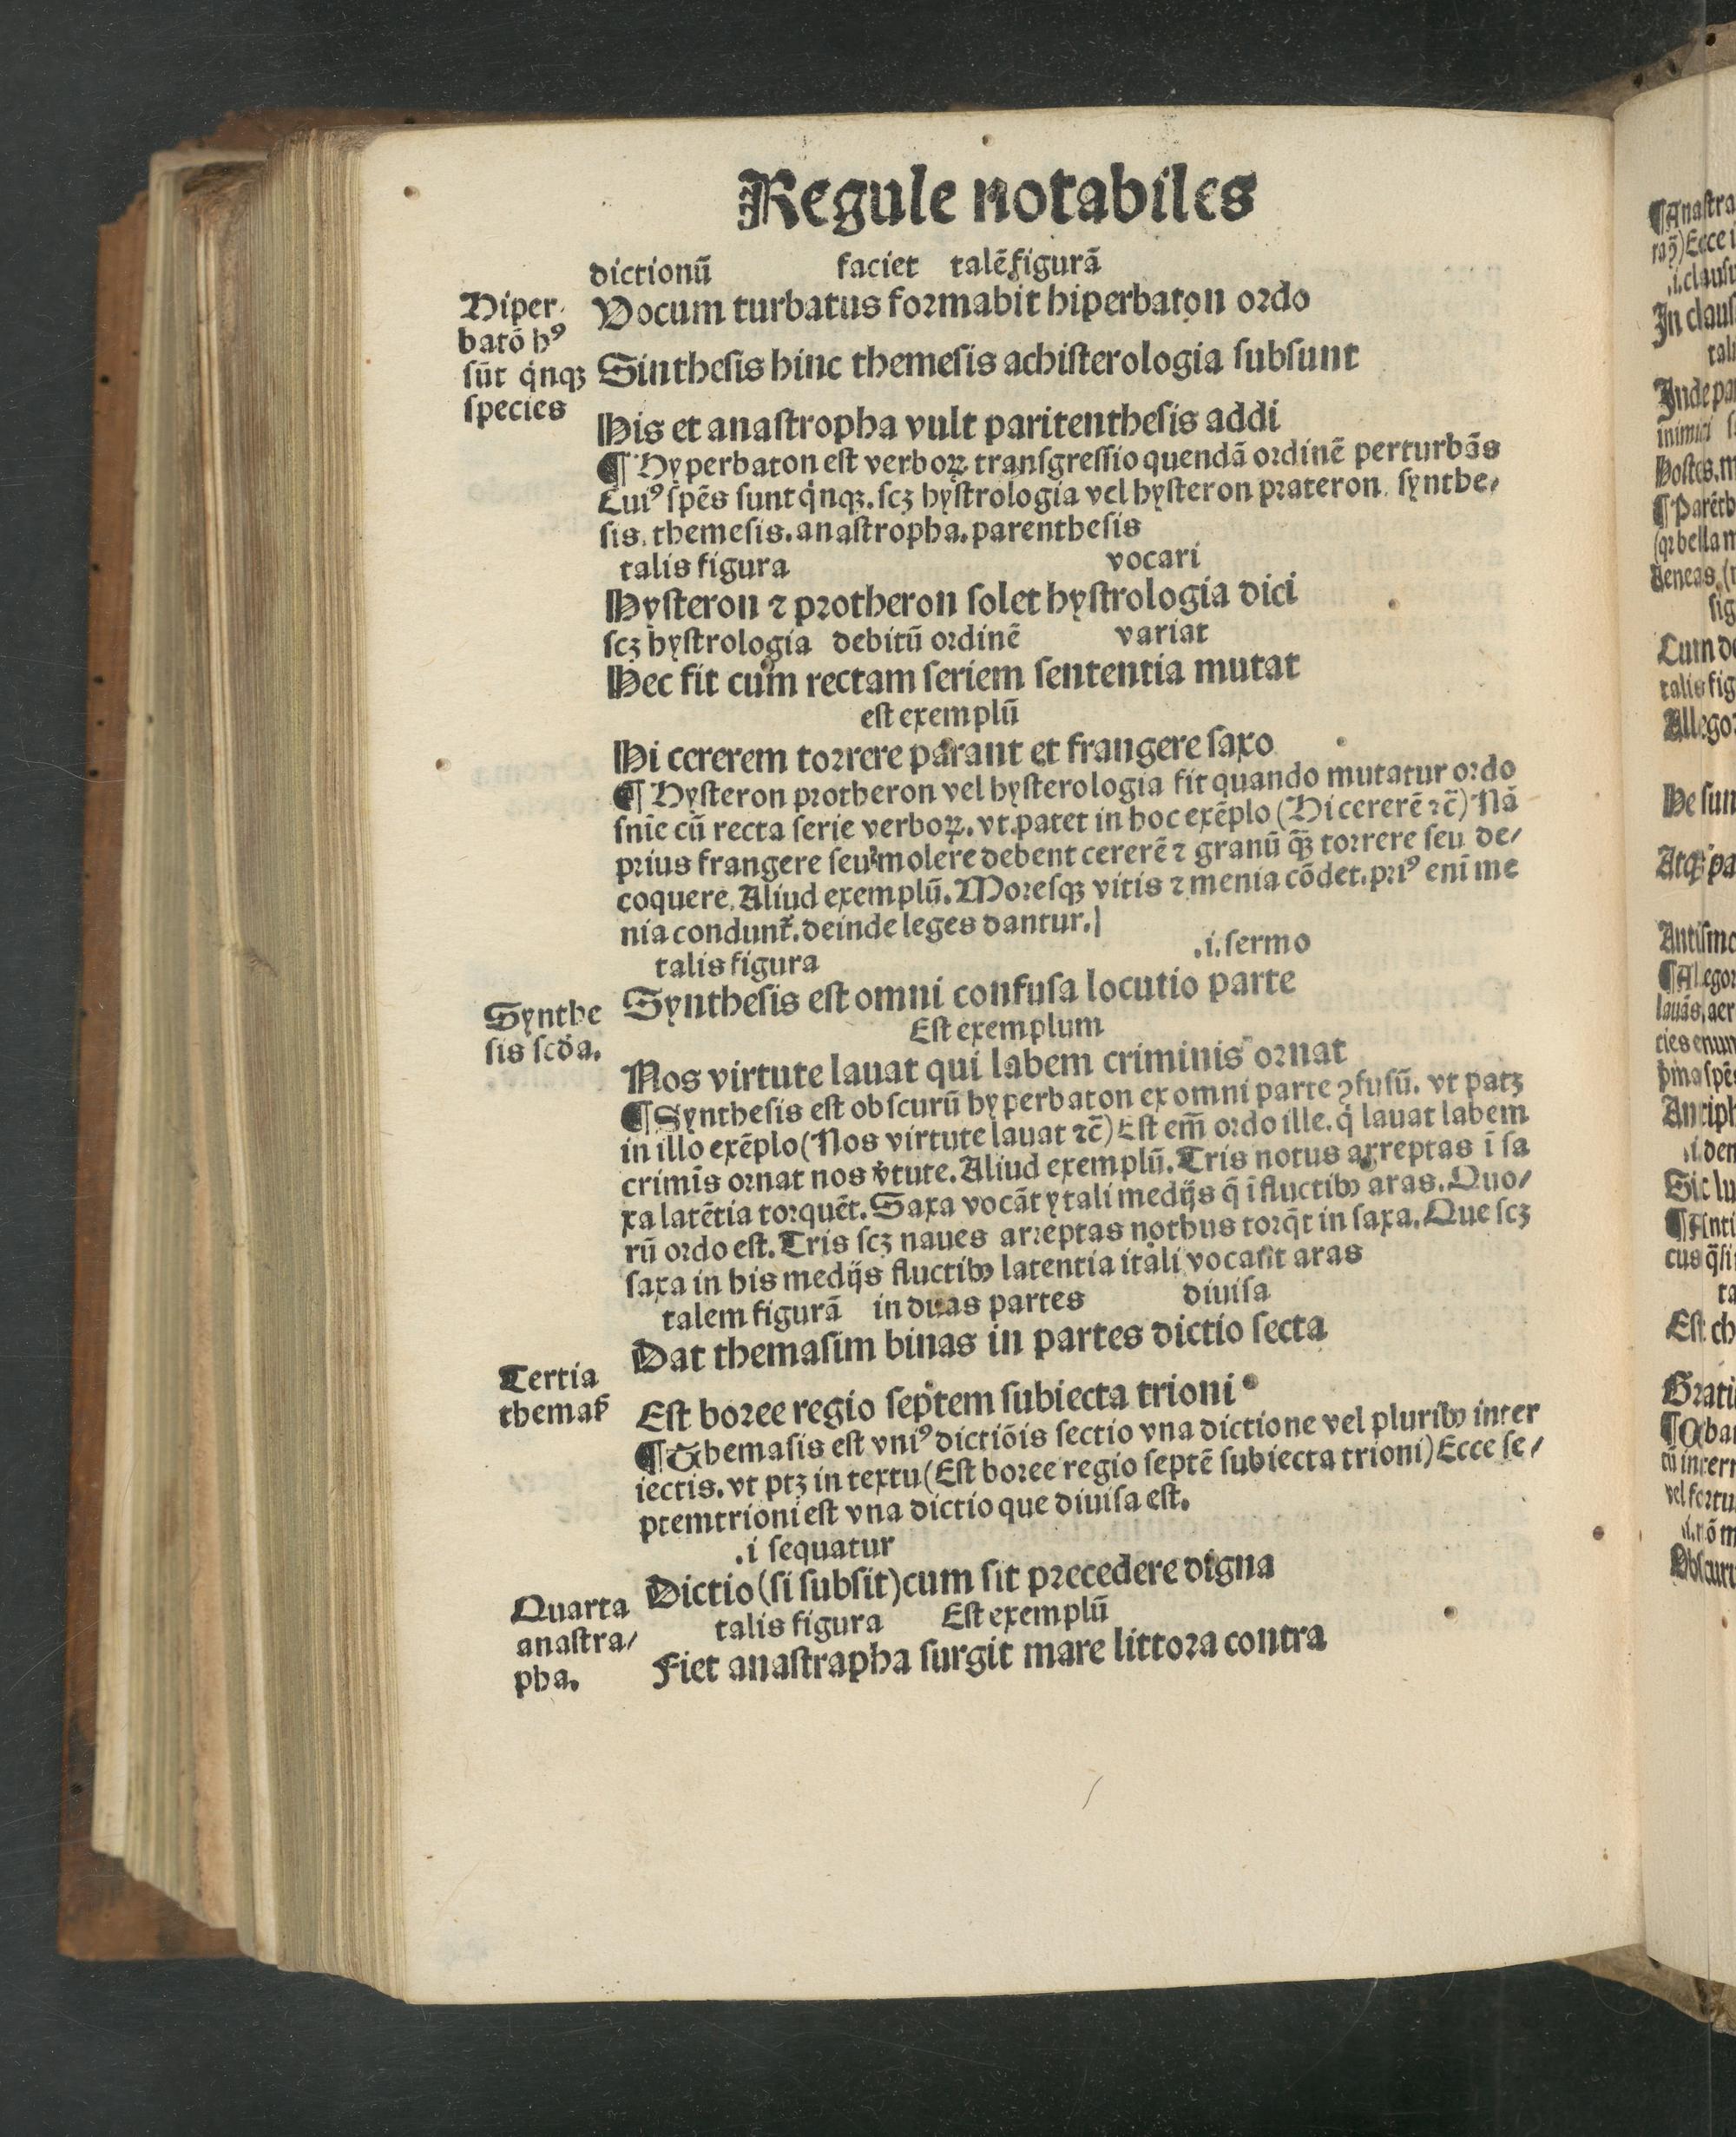 Regule notabiles
dictionū faciet talē figurā
Vocum turbatus formabit hiperbaton ordo
Hiper-
batō hꝰ
sūt qͥnqꝫ
species
Sinthesis hinc themesis achisterologia subsunt
His et anastropha vult paritenthesis addi
¶ Hyperbaton est verboꝝ transgressio quendā ordinē perturbās
Cuiꝰ spēs sunt qͥnqꝫ. scꝫ hystrologia vel hysteron prateron. synthe-
sis. themesis. anastropha. parenthesis
talis figura vocari
Hysteron ⁊ protheron solet hystrologia dici
scꝫ hystrologia debitū ordinē variat
Hec fit cum rectam seriem sententia mutat
est exemplū
Hi cererem torrere parant et frangere saxo
¶ Hysteron protheron vel hysterologia fit quando mutatur ordo
snīe cū recta serie verboꝝ. vt. patet in hoc exēplo (Hi cererē ⁊c̄) Nā
prius frangere seu molere debent cererē ⁊ granū qꝫ̄ torrere seu de-
coquere. Aliud exemplū. Moresqꝫ viris ⁊ menia cōdet. priꝰ enī me
nia condunt᷑. deinde leges dantur.
talis figura .i. sermo
Synthesis est omni confusa locutio parte
Synthe
sis scd̄a.
Est exemplum
Nos virtute lauat qui labem criminis ornat
¶ Synthesis est obscurū hyperbaton ex omni parte ꝯfusū. vt patꝫ
in illo exēplo (Nos virtute lauat ⁊c̄) Est em̄ ordo ille. qͥ lauat labem
crimīs ornat nos v̓tute. Aliud exemplū. Tris notus arreptas ī sa
xa latētia torquēt. Saxa vocāt ytali medijs q̄ ī fluctibꝰ aras. Quo-
rū ordo est. Tris scꝫ naues arreptas nothus torq̄t in saxa. Que scꝫ
saxa in his medijs fluctibꝰ latentia itali vocant aras
talem figurā in duas partes diuisa
Dat themasim binas in partes dictio secta
Tertia
themaẜ
Est boree regio septem subiecta trioni
¶ Themasis est vniꝰ dictiōis sectio vna dictione vel pluribꝰ inter
iectis. vt ptꝫ in textu (Est boree regio septē subiecta trioni) Ecce se-
ptemtrioni est vna dictio que diuisa est.
.i sequatur
Dictio (si subsit) cum sit precedere digna
Quarta
anastra-
pha.
talis figura Est exemplū
Fiet anastrapha surgit mare littora contra